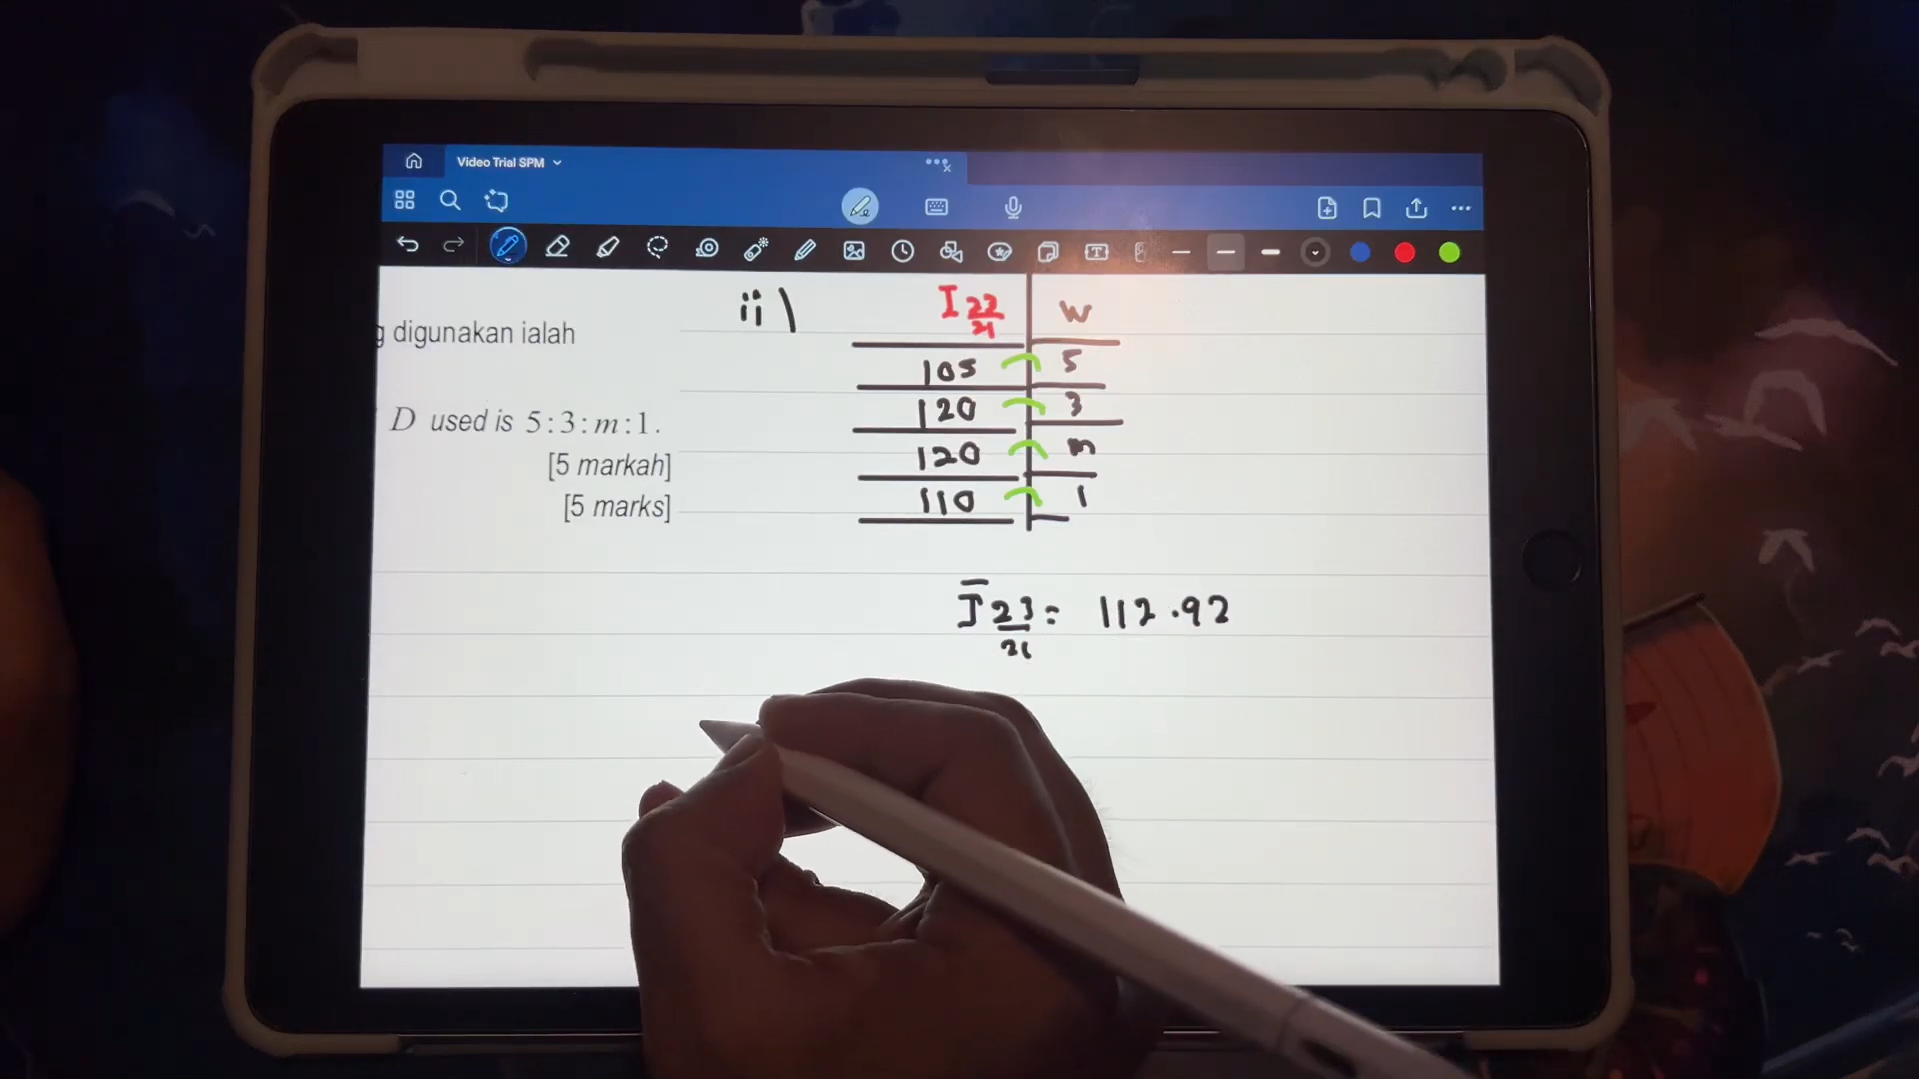 Video Trial SPM
g digunakan ialah
D used is 5:3:m:1.
[5 markah]
[5 marks]
ii)
I 23/21 W
105 5
120 3
120 m
110 1
Ī 23/21 = 112.92